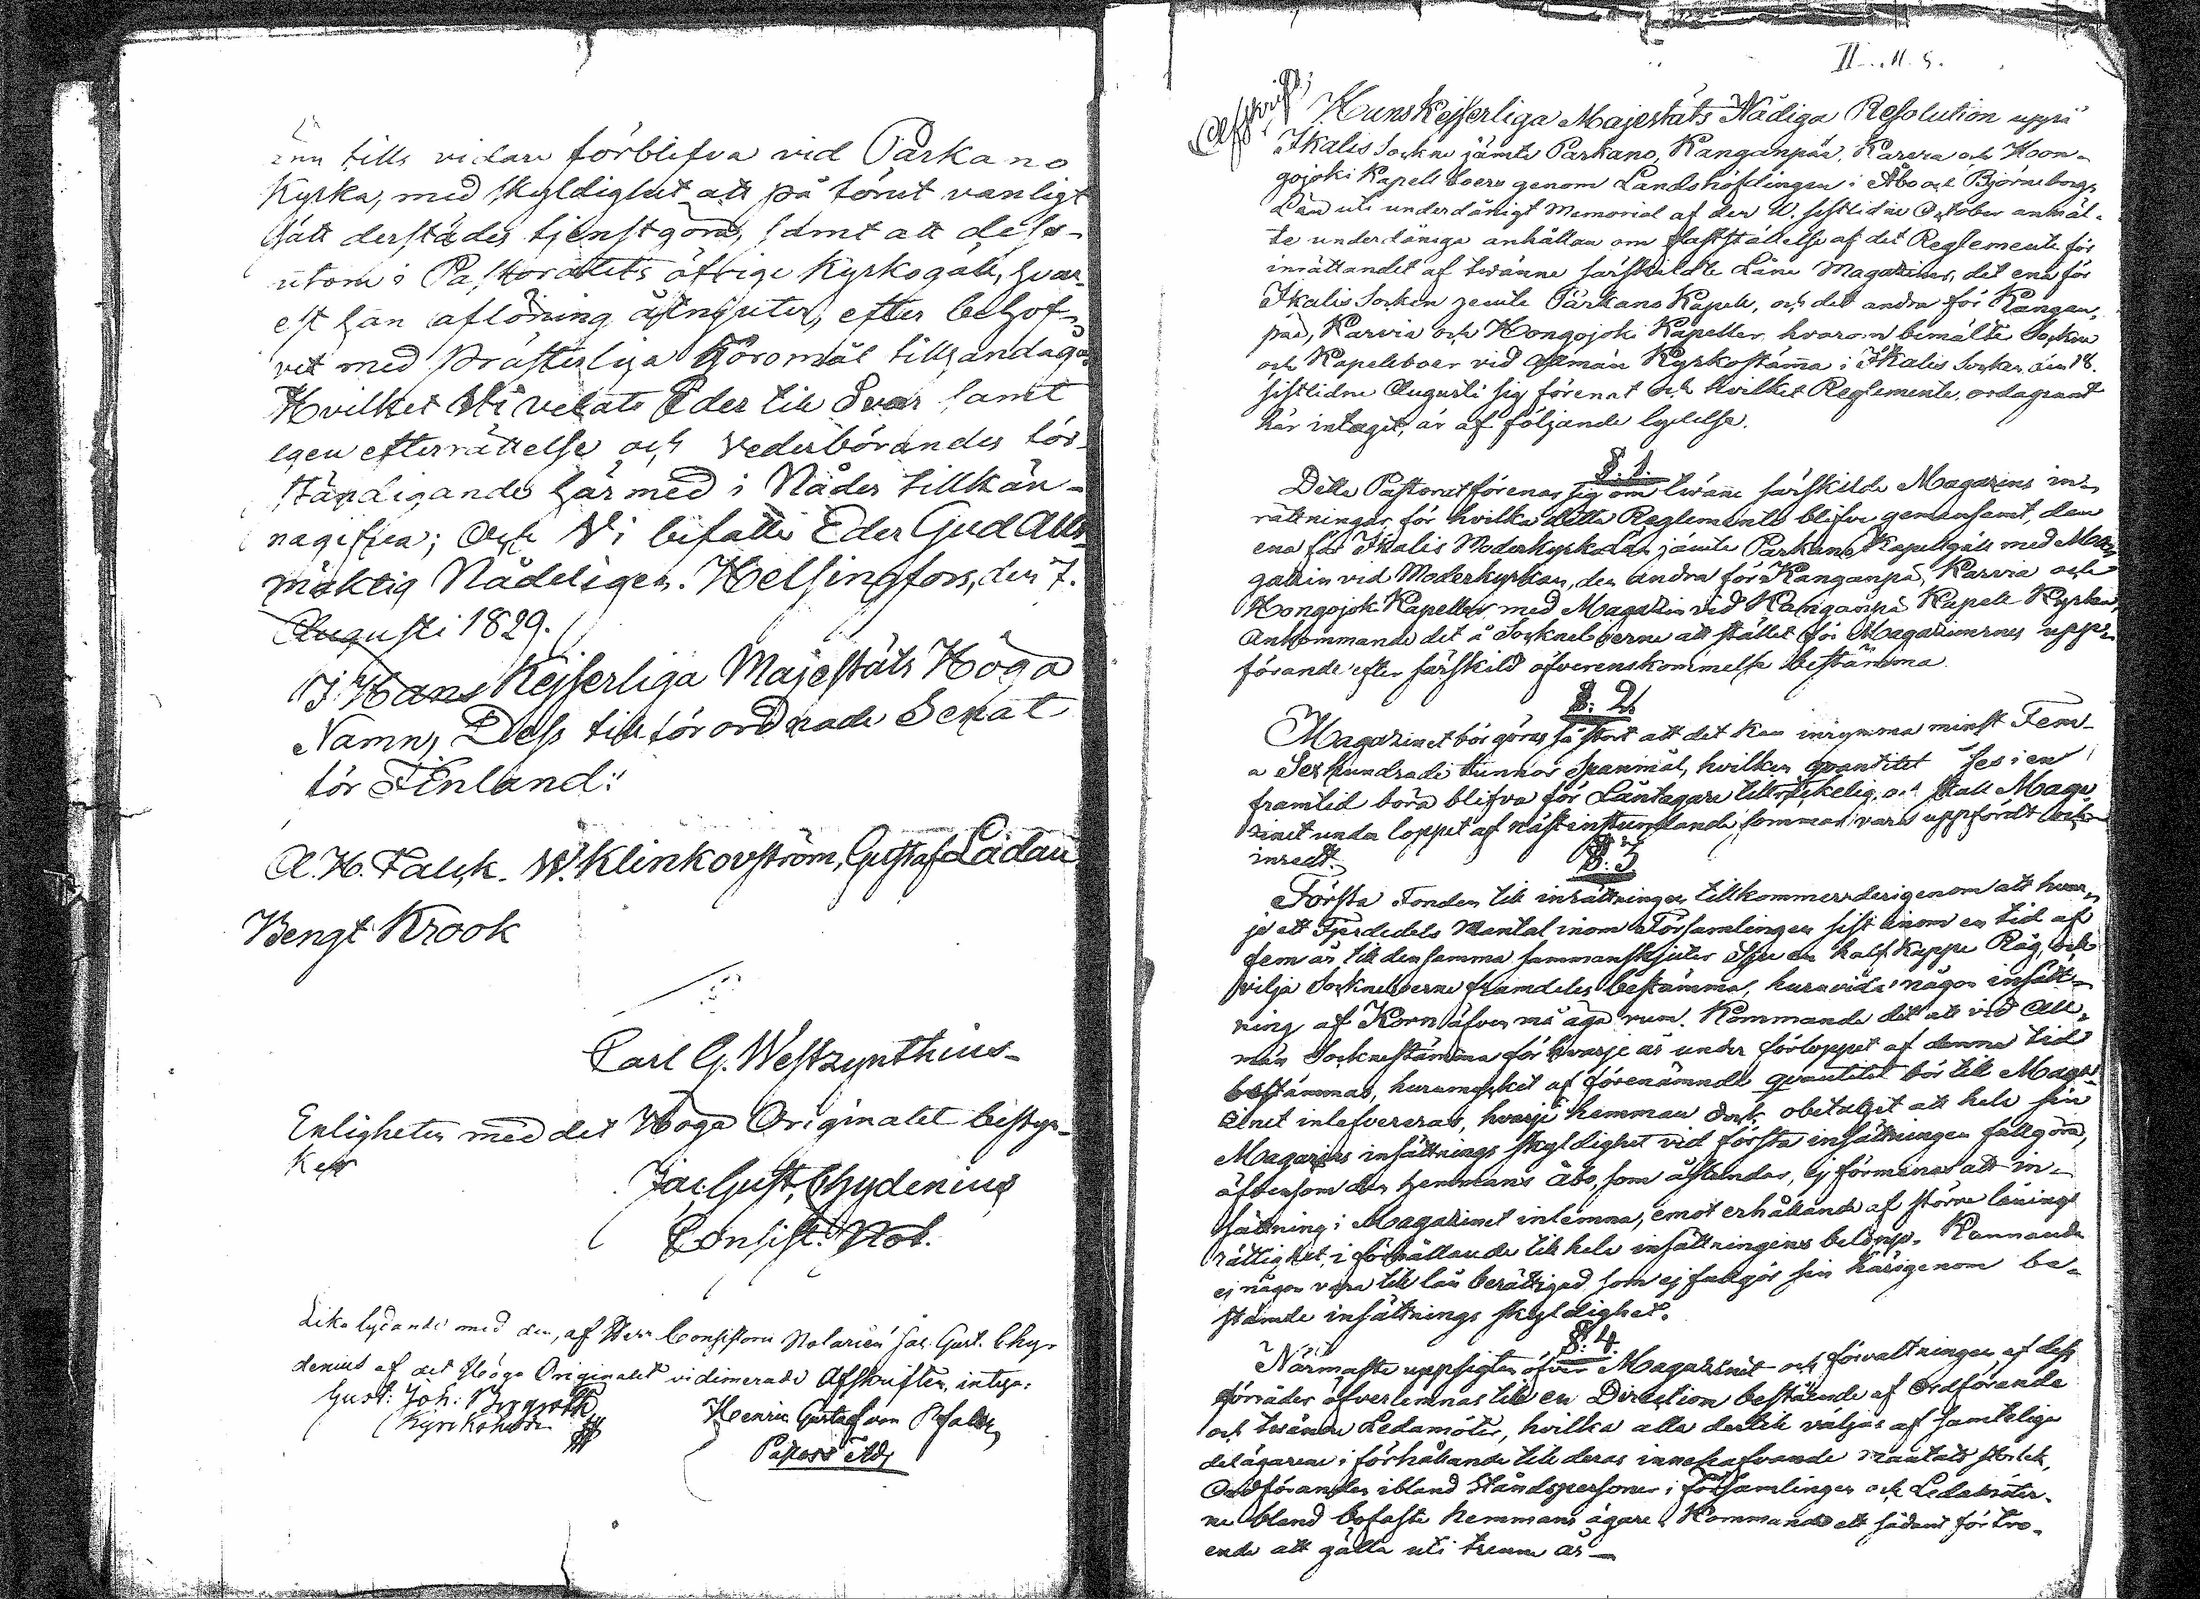 ännu tills vidare förblifva vid Parkano
Kyrka, med skyldighet att på förut vanligt
sätt derstädes tjenstgöra, samt att dess-
utom i Pastoratets öfrige Kyrkogäll, hvar-
est han aflöning åtnjuter, efter behof-
vet med Prästerliga Göromål tillhandagå.
Hvilket Vi velat Eder till Svar samt
egen efterrättelse och vederbörandes för-
ständigande härmed i Nåder tillkän-
nagifva; Och Vi befalle Eder Gud Alls-
mäktig Nådeligen. Helsingfors, den 7.
Augusti 1829.
I Hans Kejserliga Majestäts Höga
Namn, Dess tillförordnade Senat
för Finland:
A. H. Falck. W. Klinkovström, Gustaf Ladau
Bengt Krook
Carl G. Westzynthius
Enligheten med det Höga Originalet bestyr-
ker
Jac: Gust. Chydenius
Consist. Not.
Lika lydande med den, af Herr Consistorii Notarien Jac. Gust. Chy-
denius af det Höga Originalet vidimerade Afskriften, intyga:
Gust: Joh:
Henric Gustaf von
Pastors Adj
II
Afskrift,
Hans Kejserliga Majestäts Nådiga Resolution uppå
Ikalis Sockne jämte Parkano, Kanganpää, Karvia och Hon-
gojoki Kapell boers genom Landshöfdingen i Åbo och Björneborgs
Län uti underdånigt Memorial af den sistlidne October anmäl-
te underdåniga anhållan om fastställelse af det Reglemente för
inrättandet af twänne särskildte Låne Magaziner, det ena för
Ikalis Socken jemte Parkano Kapell, och det andra för Kangan-
pää, Karvia och Hongojoki Kapeller, hvarom bemälte Sockne
och Kapellboer vid allmän Kyrkostämma i Ikalis Socken den 18.
sistlidne Augusti sig förenat och hvilket Reglemente, ordagrant
här intagit, är af följande lydelse.
§. 1.
Dette Pastorat förenar sig om twänne särskilde Magazins in-
rättningar, för hvilka detta Reglemente blifver gemensamt, den
ena för Ikalis Moderkyrka Län jämte Parkano Kapellgäll med Maga-
gazin vid Moderkyrkan, den andra för Kanganpä, Karvia och
Hongojoki Kapeller med Magazin vid Kanganpä Kapell Kyrka,
Ankommande det å Sockneboerne att stället för Magazinernes upp-
förande efter särskild öfverenskommelse bestämma.
§. 2.
Magazinet bör göras så stort att det kan inrymma minst Fem-
a Sex hundrade tunnor Spanmål, hvilken qvantitet äfves i en
framtid böra blifva för Låntagare tillräckelig, och skall Maga-
zinet under loppet af näst instundande sommar vara uppfördt och
inredt.
§. 3
Första Fonden till inrättningen tillkommer derigenom att hvar-
je ett Fjerdedels Mantal inom Församlingen sist inom en tid af
fem år till densamma sammanskjuter Sju en half Kappe Råg, och
vilja Sockneboerne framdeles bestämma, huruvida någon insätt-
ning af Korn äfven må äga rum. Kommande det att vid All-
män Socknestämma för hvarje år under förloppet af denna tid
bestämmas, huru mycket af förenämnde qvantitet bör till Maga-
zinet inlefvereras, hvarje hemman dock obetaget att hela sin
Magazins insättnings skyldighet vid första insättningen fullgöra,
äfvensom den hemmans Åbo, som åstundar, ej förmenas att in-
sättning i Magazinet inlemna, emot erhållande af större lånings
rättighet, i förhållande till hela insättningens belopp. Kunnande
ej någon vara till lån berättigad som ej fullgör sin härigenom be-
stämde insättnings skyldighet.
§. 4.
Närmaste uppsigten öfver Magazinet och förvaltningen af dess
förråder öfverlemnas till en Direction bestående af Ordförande
och twänne Ledamöter, hvilka alla dertill väljas af samtelige
delägarene i förhållande till deras innehafvande mantals storlek,
Ordföranden ibland Ståndspersoner i Församlingen och Ledamöter-
ne bland bofaste hemmans ägare. Kommande ett sådant förtro-
ende att gälla uti trenne år